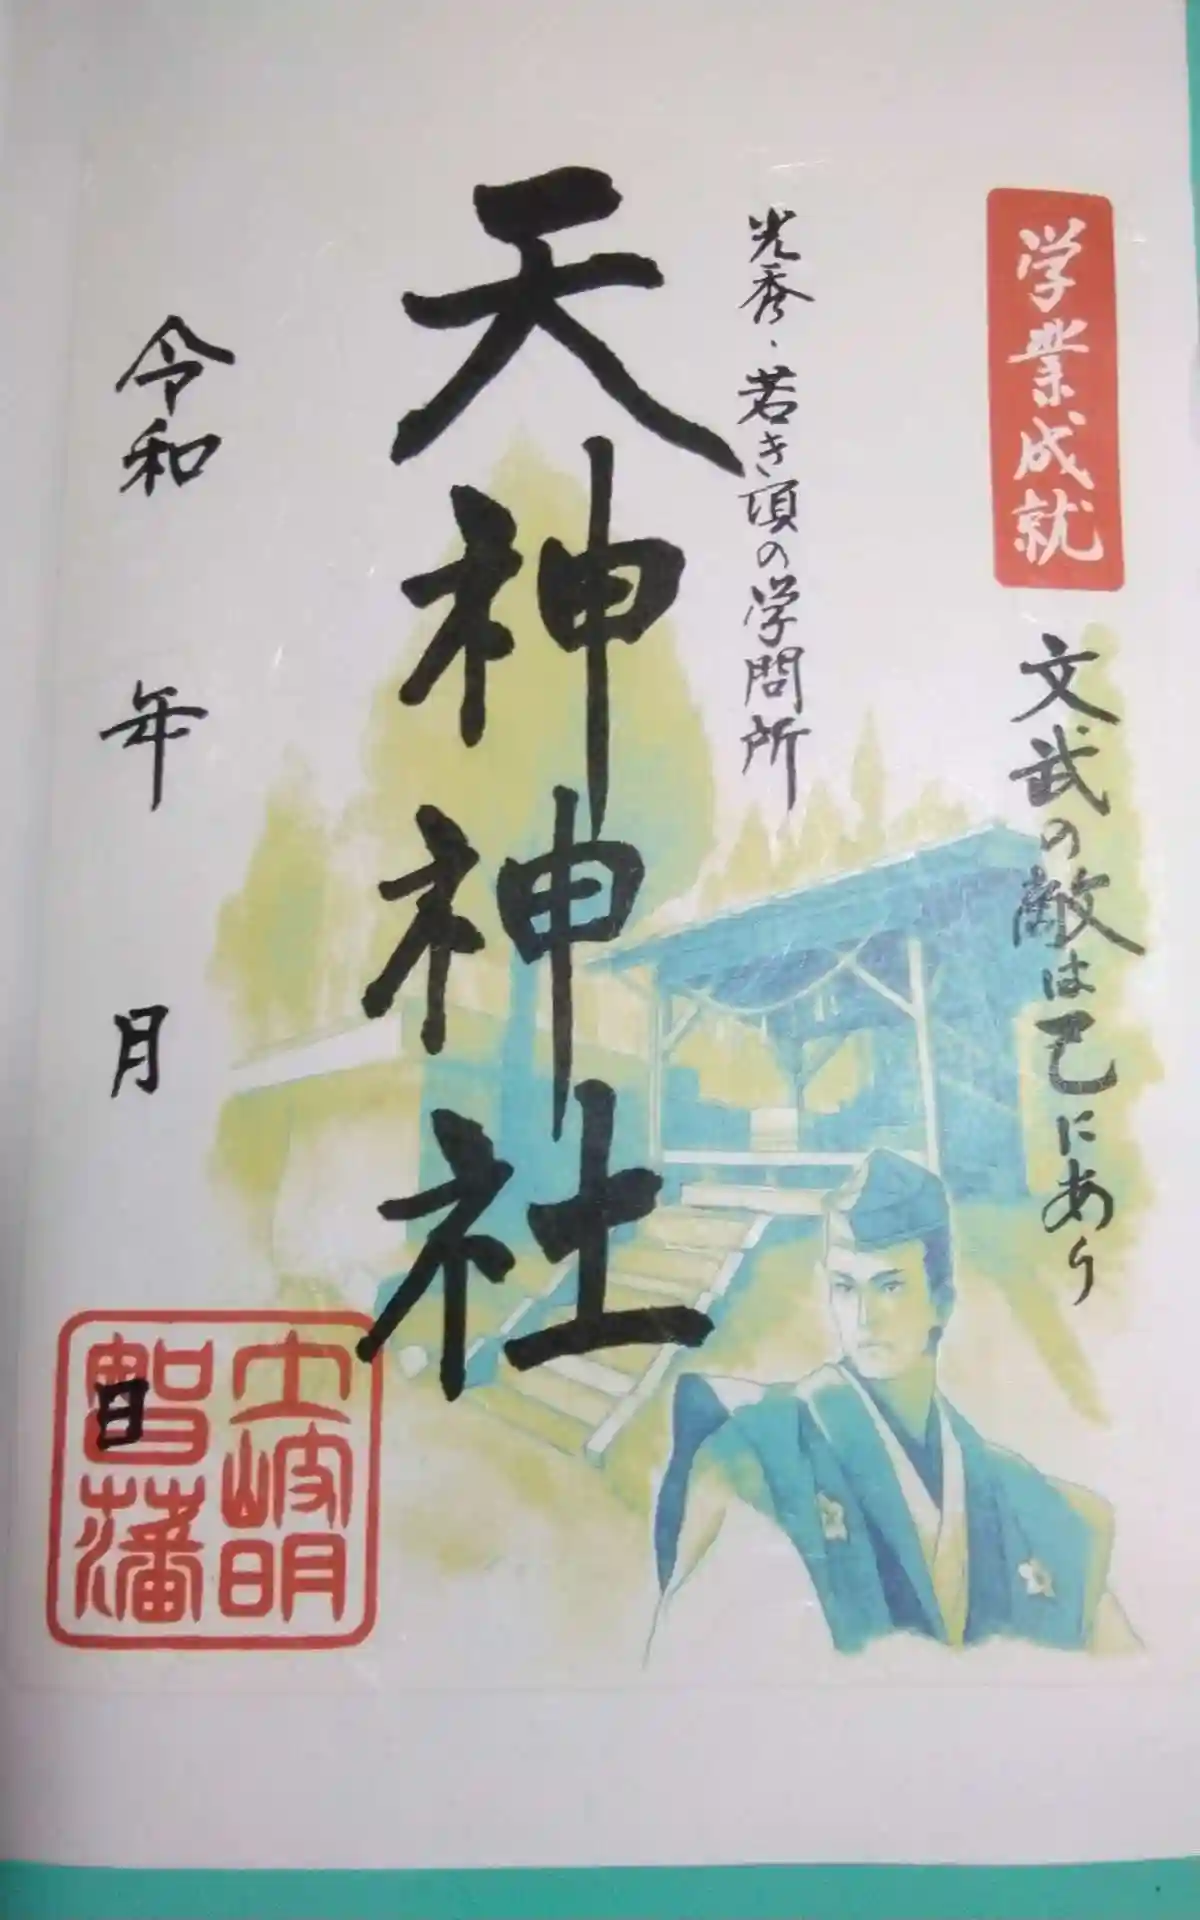 学業成就
文武の敵は己にあり
光秀、若き頃の学問所
天神神社
令和 年 月 日
土岐明
智藩